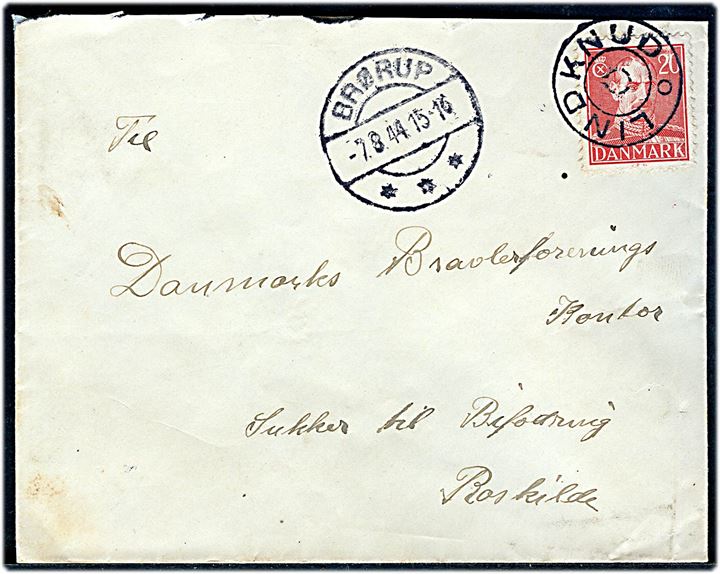 LINDKNUD
20
DANMARK
BRØRUP
-7.8.44.15-16
Til
Danmarks Biavlerforenings
Kontor
Sukker til Bifodring
Roskilde